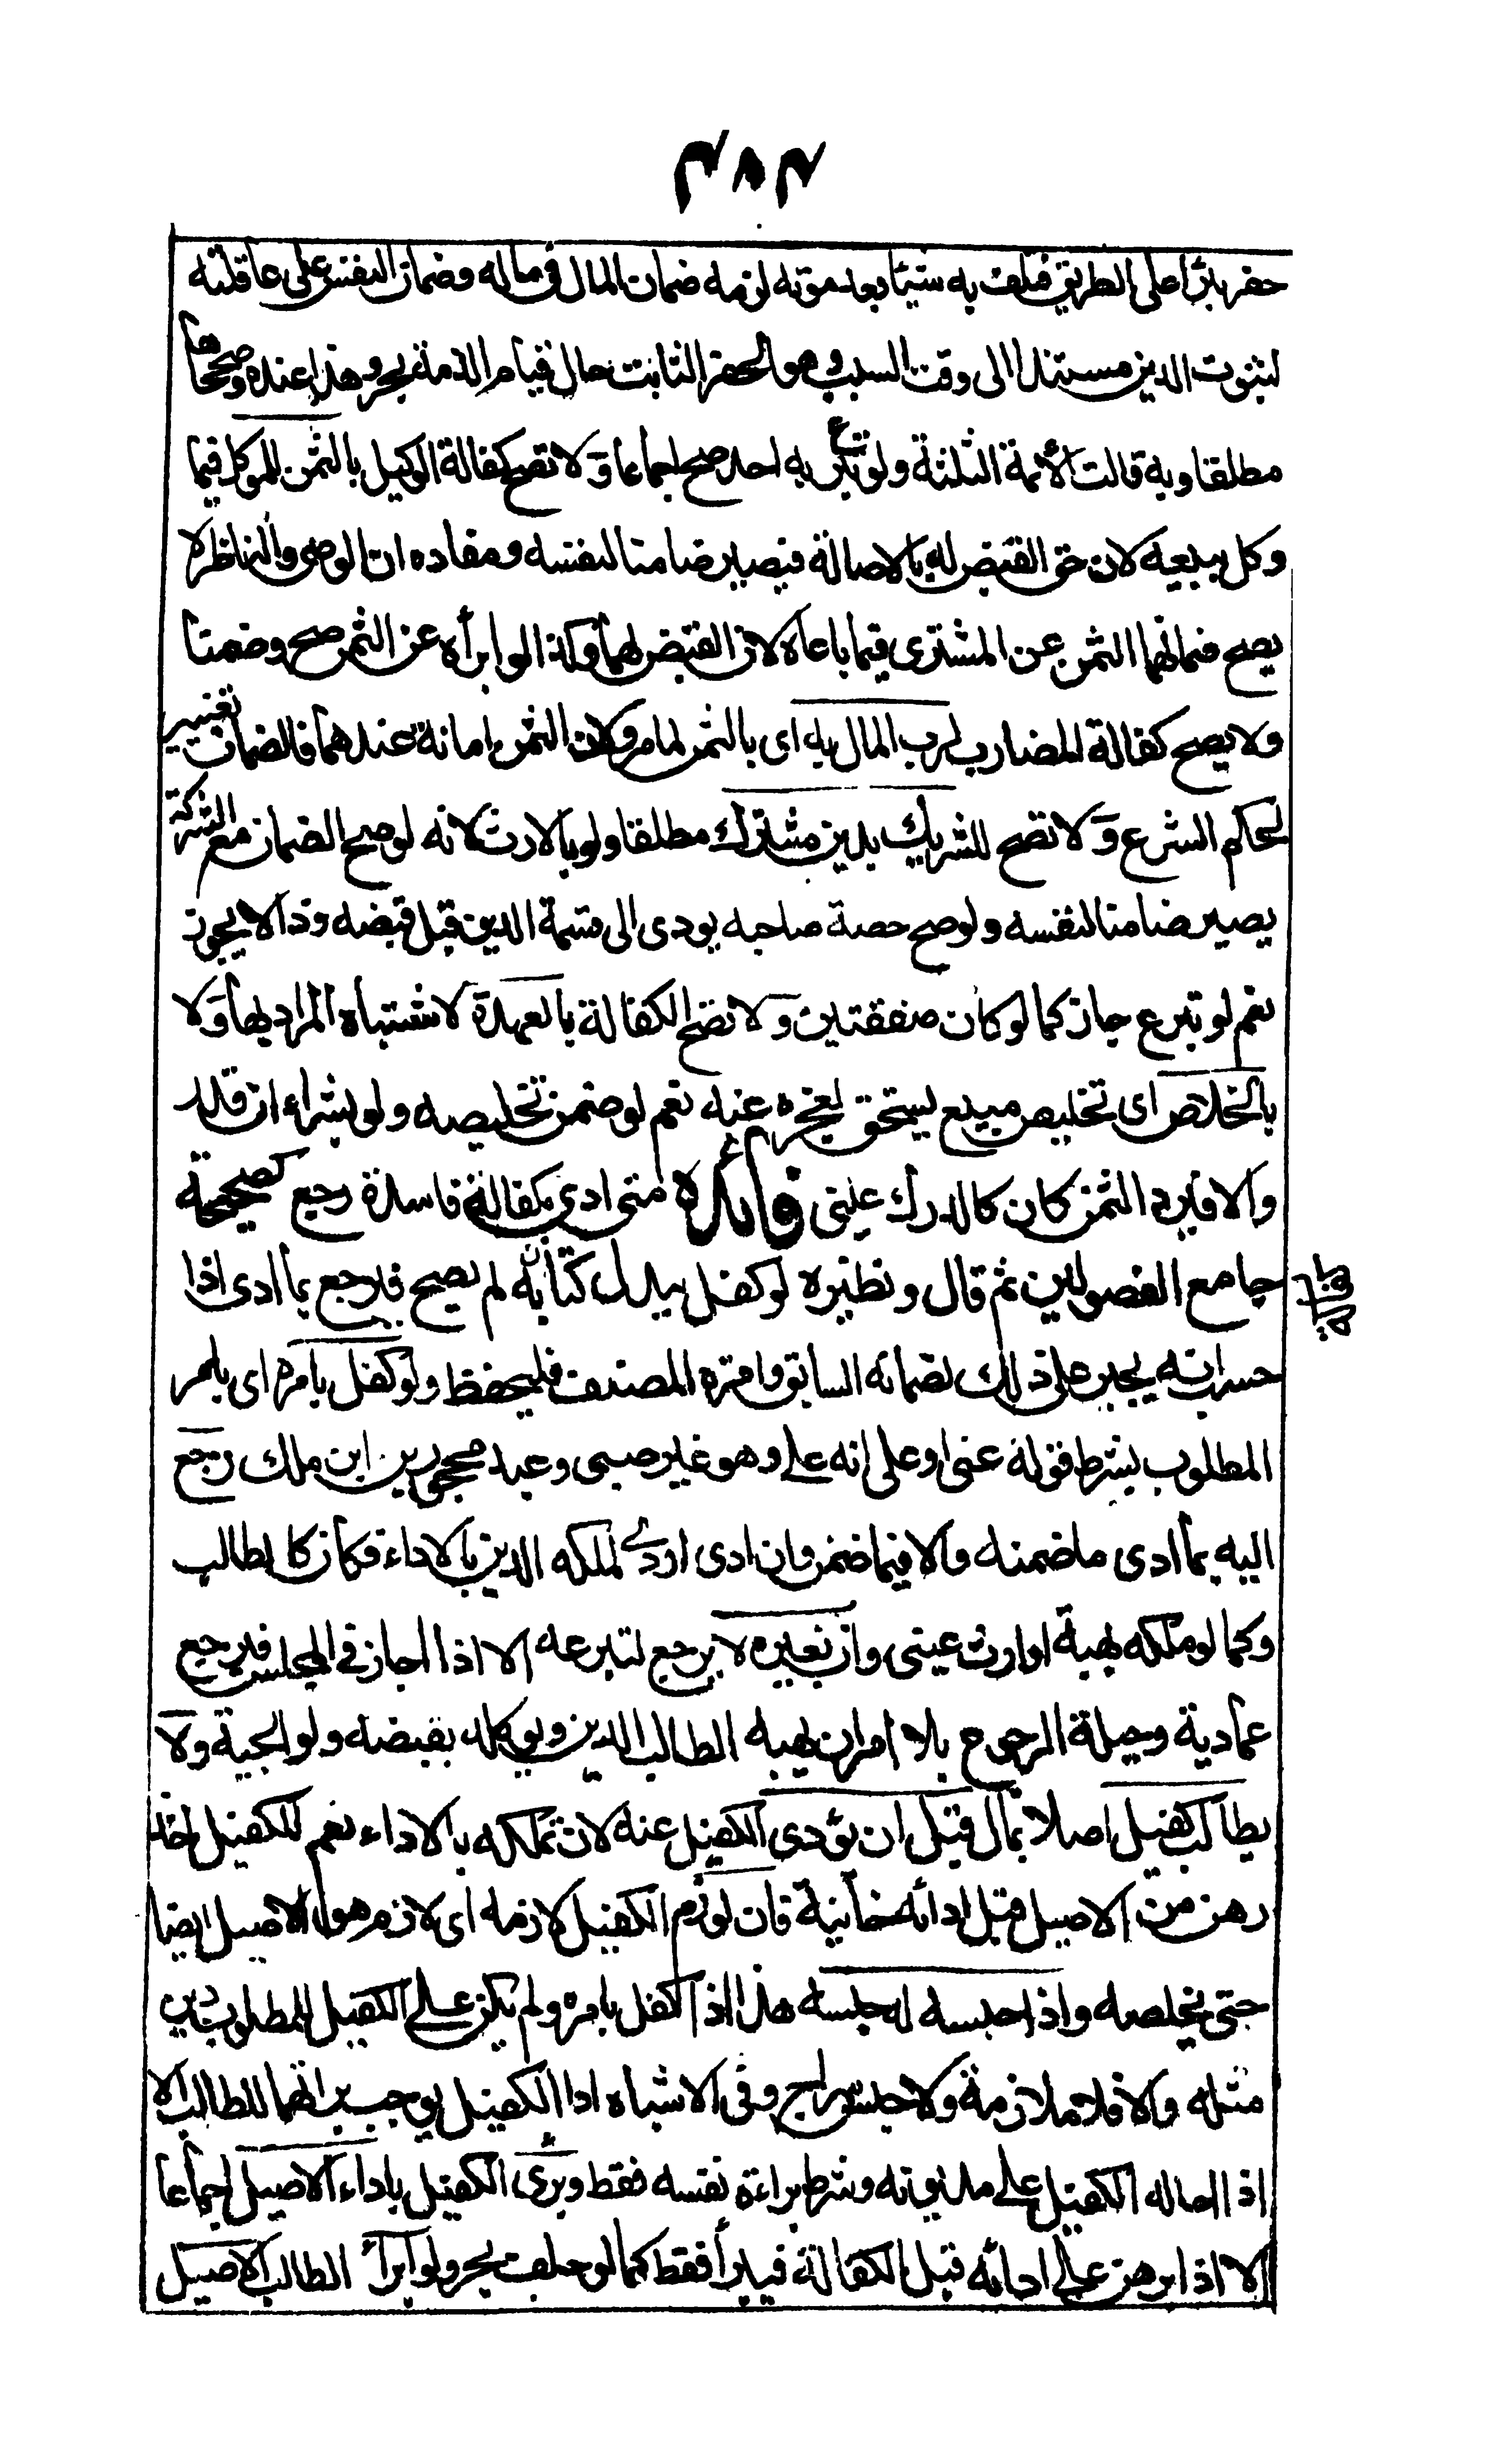 ٣٨٣
حفر بئرا على الطريق فتلف به شيئا بعد موته لزمه ضمان المال في ماله وضمان النفس على عاقلته
لثبوت الدين مستندا الى وقت السبب وهو الحفر الثابت حال قيام الذمة بحر وهذا عنده وصححاها
مطلقا وبه قالت الأئمة الثلثة ولو تبرع به احد صح اجماعا وَلا تصح كفالة الوكيل بالثمن للموكل فيما
وكل ببيعه لان حق القبض له بالاصالة فيصير ضامنا لنفسه ومفاده ان الوصى والناظر لا
يصح ضمانهما الثمن عن المشترى فيما باعاه لان القبض لهما وكذا لو ابرأه عن الثمن صح وضمنا
ولا تصح كفالة المضارب لرب المال به اى بالثمن لما مر ولان الثمن امانة عندهما فالضمان تغيير
لحكم الشرع وَلا تصح للشريك بدين مشترك مطلقا ولو بالارث لانه لو صح الضمان مع الشركة
يصير ضامنا لنفسه ولو صح حصة صاحبه يودى الى قسمة الدين قبل قبضه وذا لا يجوز
نعم لو تبرع جاز كما لو كان صفقتين وَلا تصح الكفالة بالعهدة لاشتباه المراد بها وَلا
بالخلاص اى تخليص مبيع يستحق لعجزه عنه نعم لو ضمن تخليصه ولو بشراء ان قدر
والا فيرد الثمن كان كالدرك عينى فائدة متى ادى بكفالة فاسدة رجع كصحيحة
جامع الفصولين ثم قال ونظيره لو كفل ببدل كتابة لم يصح فيرجع بما ادى اذا
حسب انه يجبر على ذلك لضمانه السابق واقره المصنف فليحفظ ولو كفل بامره اى بامر
المطلوب بشرط قوله عنى او على انه على وهو غير صبى وعبد محجورين ابن ملك رجع
اليه بما ادى ما ضمنه والا فبما ضمن وان ادى اردى لملكه الدين بالاداء فكان كالطالب
وكما لو ملكه بهبة او ارث عينى وان بغيره لا يرجع لتبرعه الا اذا اجاز في المجلس فيرجع
عمادية وحيلة الرجوع بلا امر ان يهبه الطالب الدين ويوكله بقبضه ولوالجية ولا
يطالب كفيل اصلا بمال قبل ان يؤدى الكفيل عنه لان تملكه بالاداء نعم للكفيل اخذ
رهن من الاصيل قبل ادائه خانية فان لوزم الكفيل لازمه اى لازم هو الاصيل ايضا
حتى يخلصه واذا حبسه له حبسه هذا اذا كفل بامره ولم يكن على الكفيل للمطلوب دين
مثله والا فلا ملازمة ولا حبس سراج وفي الاشباه اداء الكفيل يوجب برائتهما للطالب الا
اذا احاله الكفيل على مديونه وشرط براءة نفسه فقط وبرئ الكفيل باداء الاصيل اجماعا
الا اذا برهن على ادائه قبل الكفالة فيبرأ فقط كما لو حلف بحر ولو ابرأ الطالب الاصيل